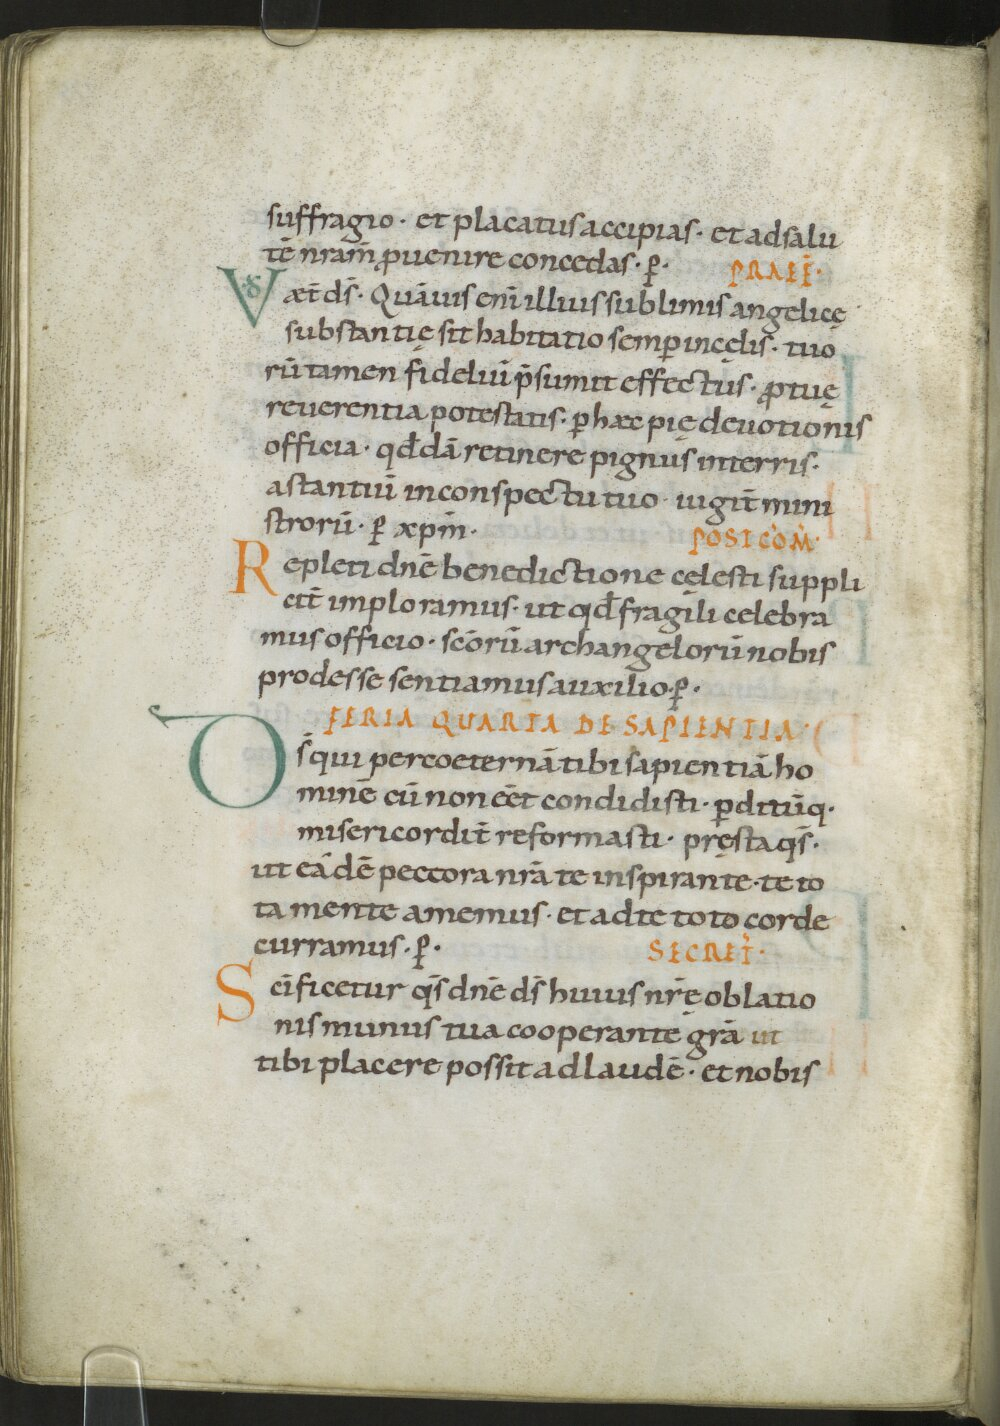 suffragio · et placatus accipias · et ad salu
tē nram̄ ꝓuenire concedas · ꝑ ·
PRAEF̄ ·
Vꝺ̄ æt̄ ds̄ · Quāuis enī illius sublimis angelicę
substantię sit habitatio semꝑ incęlis · tuo
rū tamen fideliū p̄sumit effectus · ꝓ tuę
reuerentia potestatis · ꝑ hæc pię deuotionis
officia · qd̄ dā retinere pignus interris ·
astantiū inconspectu tuo iugit̄ mini
strorū · ꝑ xpm̄ ·
POST COM̄ ·
Repleti dnē benedictione cęlesti suppli
cit̄ imploramus · ut qd̄ fragili celebra
mus officio · scōrū archangelorū nobis
prodesse sentiamus auxilio · ꝑ ·
FERIA QUARTA DE SAPIENTIA ·
Ds̄ qui per coeternā tibi sapientiā ho
minē cū non eēt condidisti · ꝑditūq ·
misericordit̄ reformasti · pręsta qs̄ ·
ut eādē pectora nrā te inspirante · te to
ta mente amemus · et ad te toto corde
curramus · ꝑ ·
SECRET̄ ·
Scīficetur qs̄ dnē ds̄ huius nrę̄ oblatio
nis munus tua cooperante grā ut
tibi placere possit ad laudē · et nobis